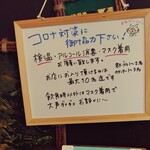 コロナ対策に
御協力下さい！
検温・アルコール消毒・マスク着用
お願い致します。
お店にお入り頂けるのは
最大10名迄です
飲食時以外はマスク着用で
大声をださず お静かに〜